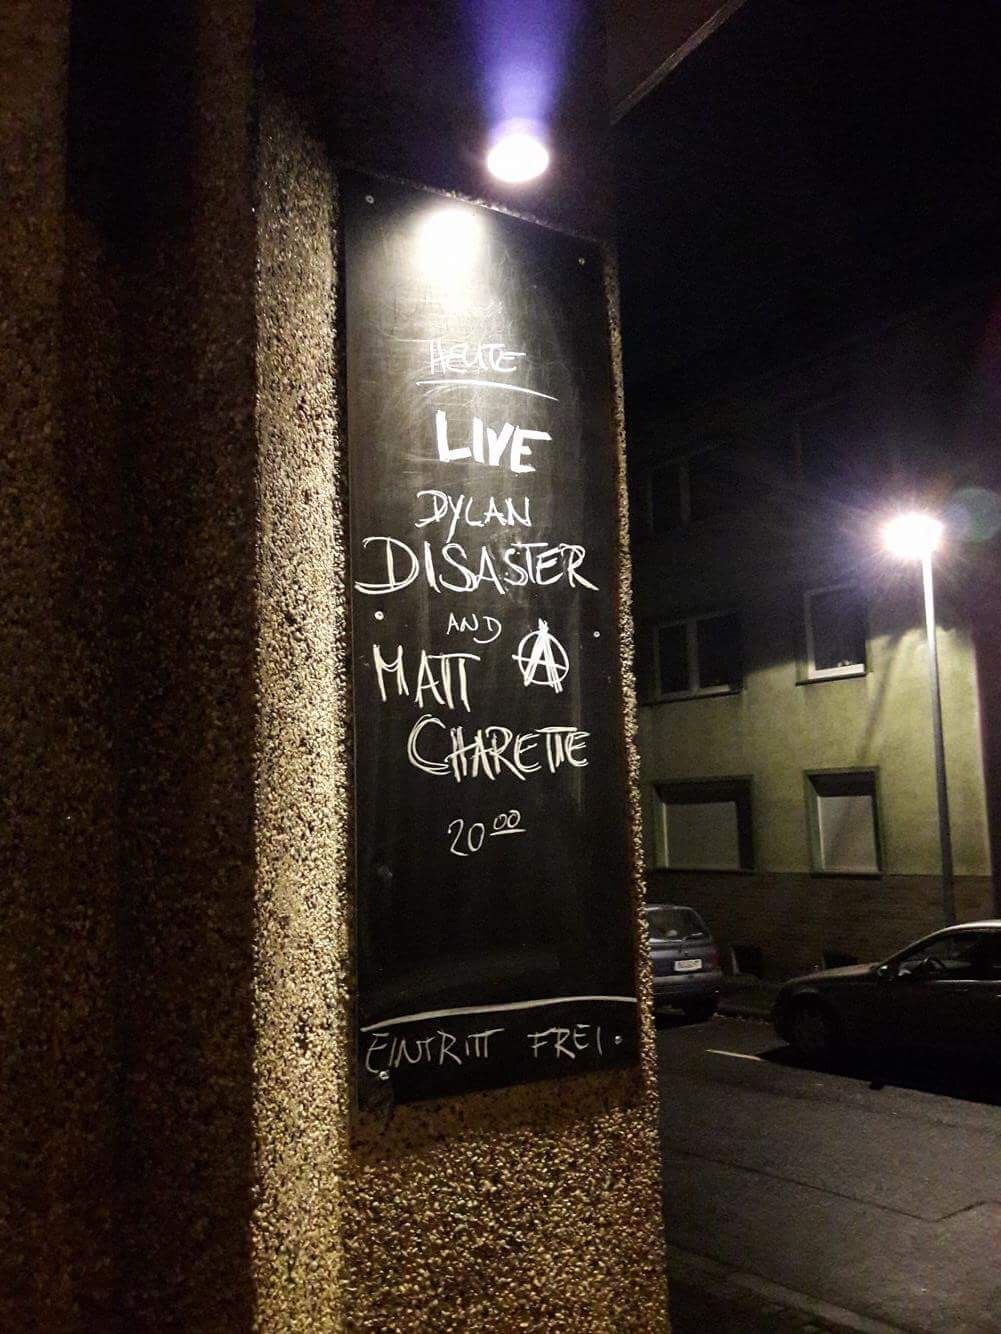 HEUTE
LIVE
DYLAN
DISASTER
AND
MATT Ⓐ
CHARETTE
20⁰⁰
EINTRITT FREI